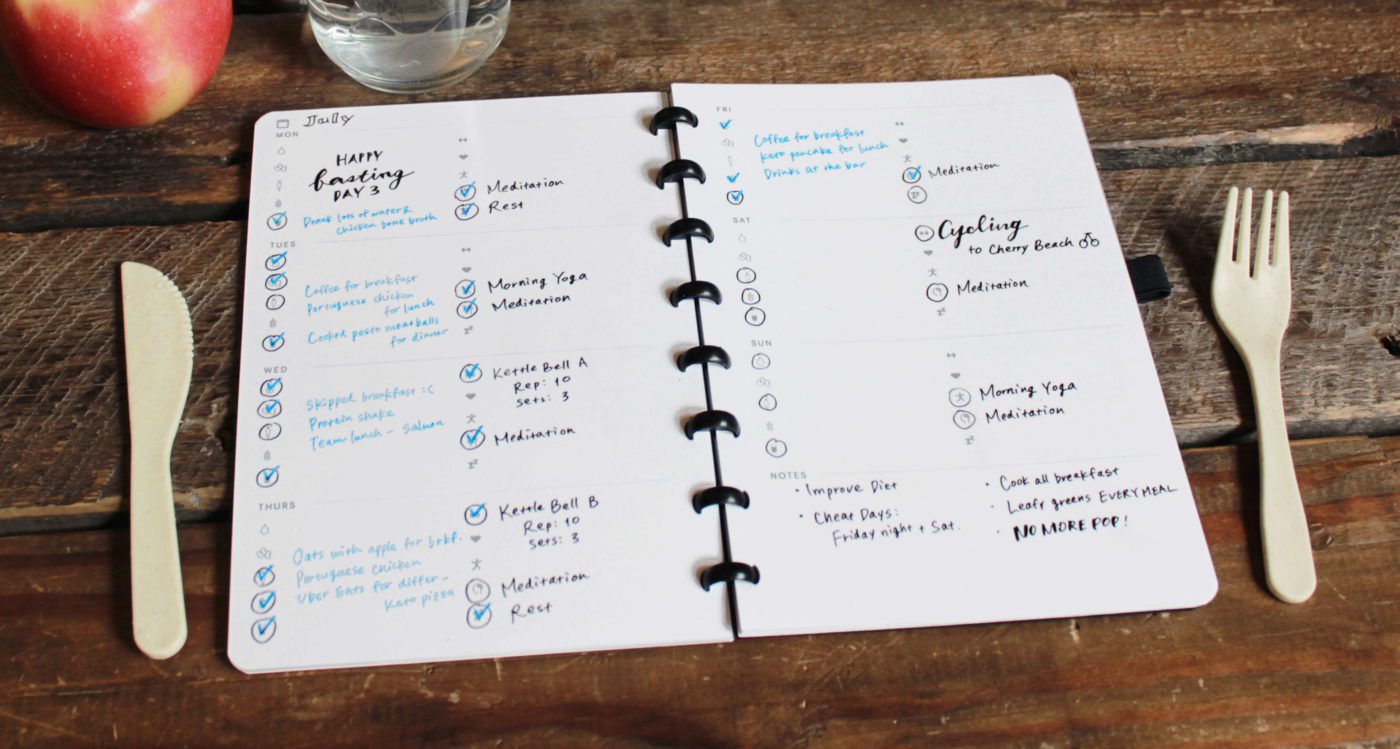 Daily
MON
HAPPY
fasting
DAY 3
Drank lots of water &
chicken bone broth
Meditation
Rest
TUES
Coffee for breakfast
Portuguese chicken
for lunch
Cooked pesto meatballs
for dinner
Morning Yoga
Meditation
WED
Skipped breakfast :(
Protein shake
Team lunch - Salmon
Kettle Bell A
Rep: 10
Sets: 3
Meditation
THURS
Oats with apple for brkf.
Portuguese Chicken
Uber Eats for differ-
keto pizza
Kettle Bell B
Rep: 10
Sets: 3
Meditation
Rest
FRI
Coffee for breakfast
Keto pancake for lunch
Drinks at the bar
Meditation
SAT
Cycling
to Cherry Beach
Meditation
SUN
Morning Yoga
Meditation
NOTES
• Improve Diet
• Cheat Days:
Friday night + Sat.
• Cook all breakfast
• Leafy greens EVERY MEAL
• NO MORE POP!